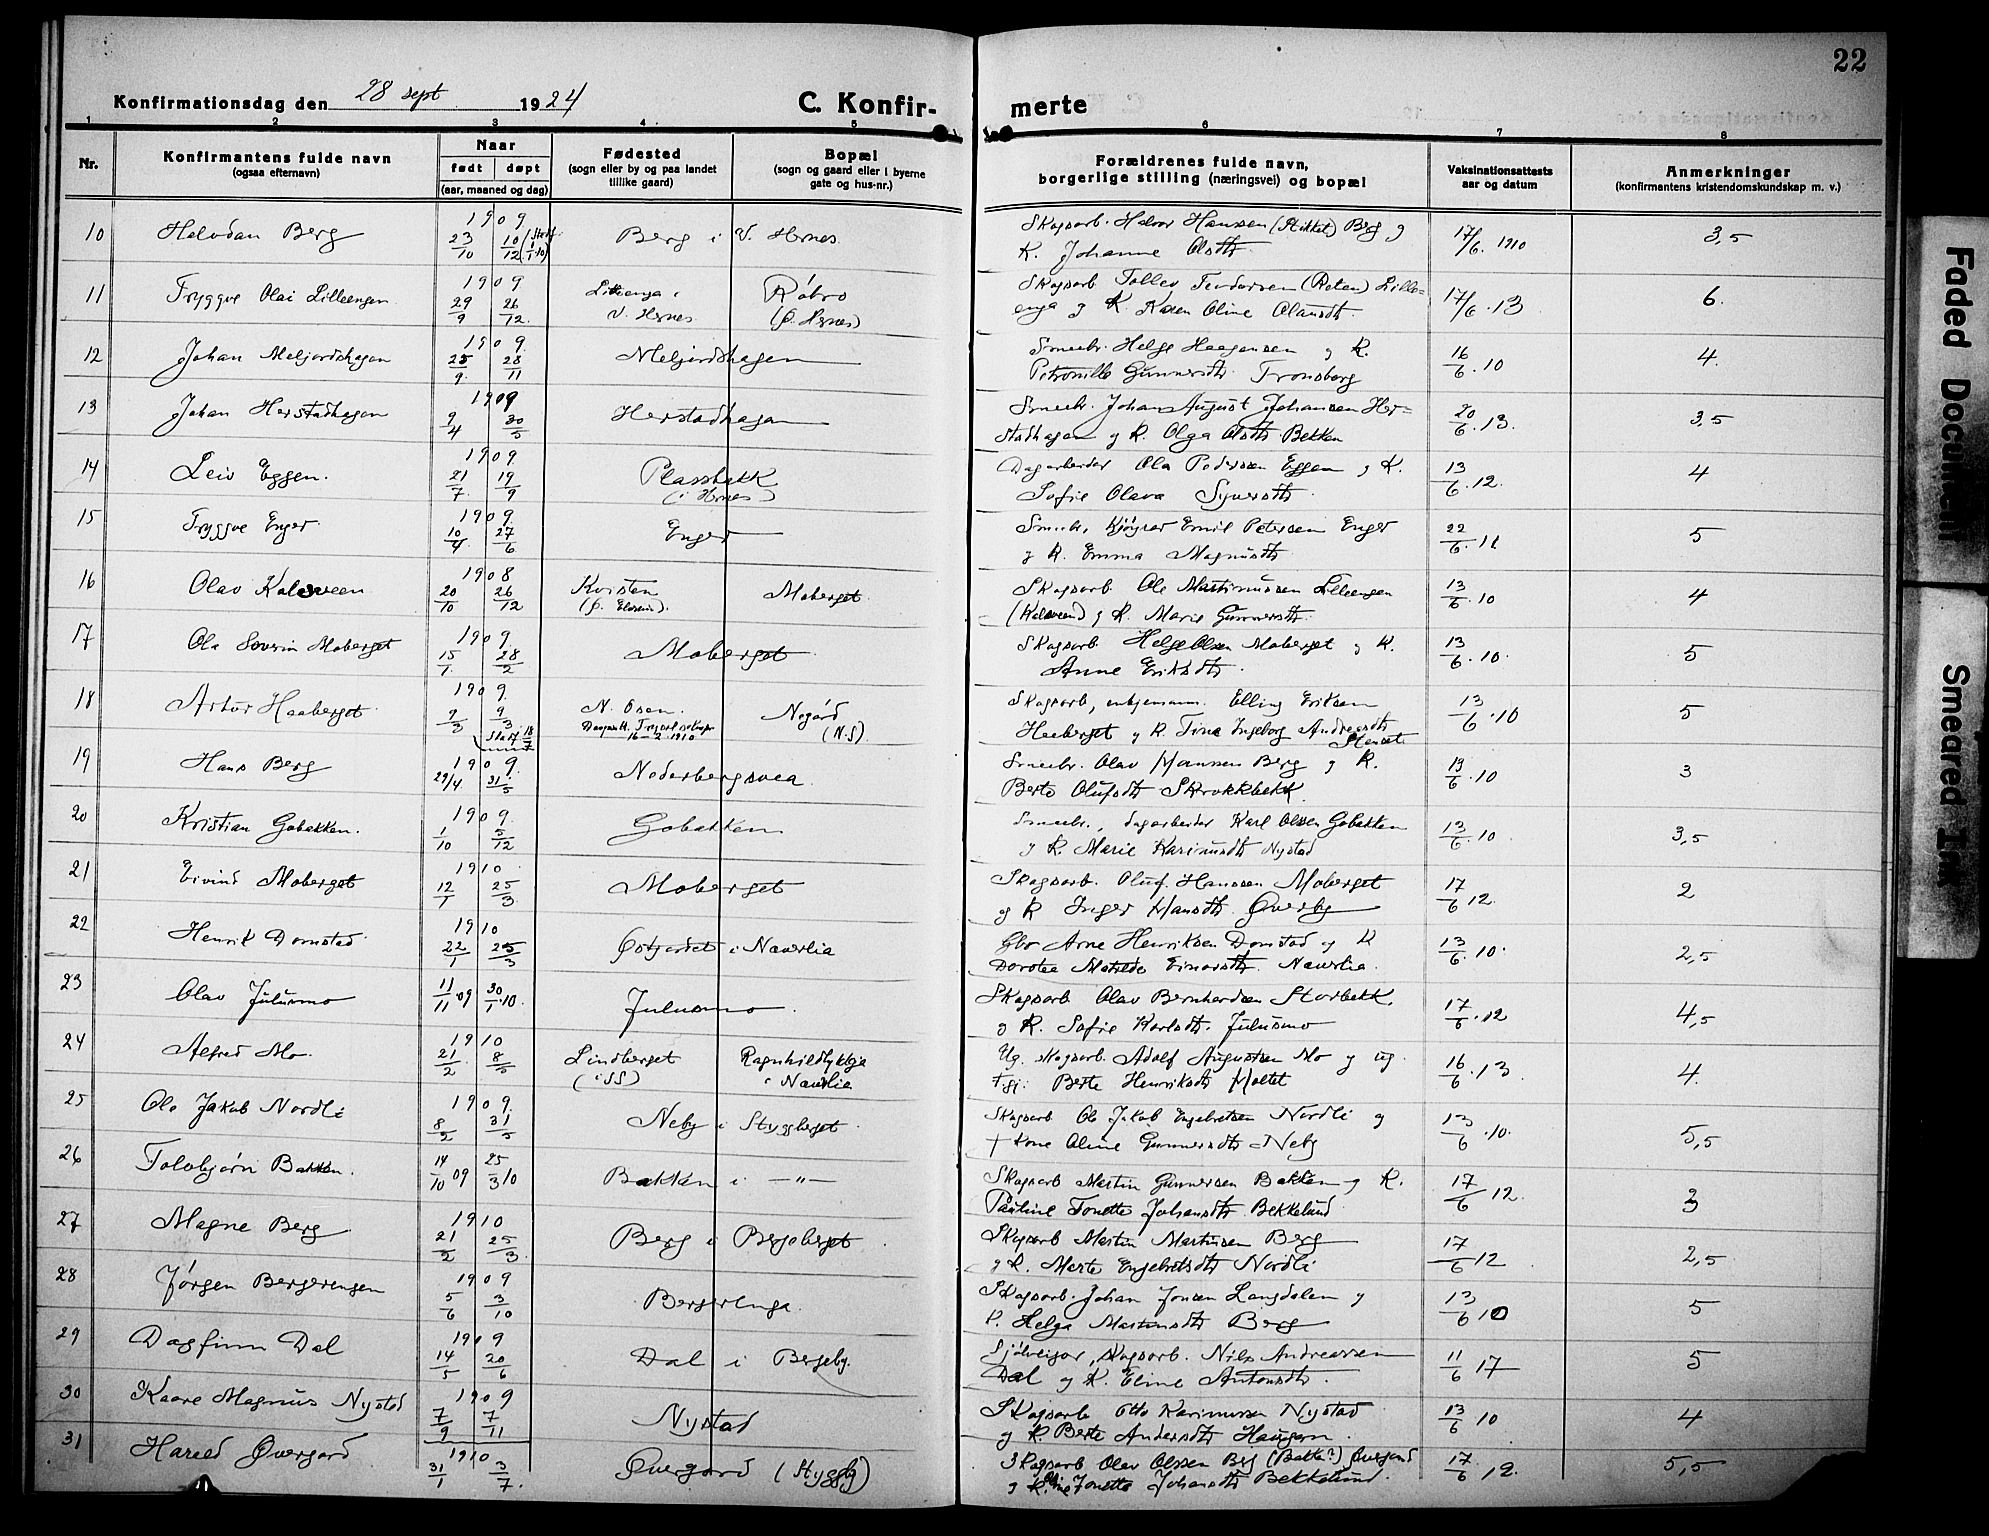 22
Konfirmationsdag den 28 sept. 1924 C. Konfir- merte
1 2 3 4 5 6 7 8
Nr. Konfirmantens fulde navn (ogsaa efternavn) Naar født døpt (aar, maaned og dag) Fødested (sogn eller by og paa landet tillike gaard) Bopæl (sogn og gaard eller i byerne gate og hus-nr.) Forældrenes fulde navn, borgerlige stilling (næringsvei) og bopæl Vaksinationsattests aar og datum Anmerkninger (konfirmantens kristendomskundskap m. v.)
10 Halvdan Berg 1909 23/10 10/12 Berg i V. Hernes Skogsarb. Halvor Hansen Berg og K. Johanne Olsdtr. 17/6. 1910 3,5
11 Tryggve Olai Lilleengen 1909 29/9 26/12. Lilleenga i V. Hernes Røbro (ø. Hernes) Skogsarb Tollev (Røten) Lille= enga og K. Karen Oline Olausdtr. 17/6. 13 6.
12 Johan Meljordshagen 1909 25/9. 28/11 Meljordshagen Smeebr. Helge Haagensen og K. Petronille Gunnersdtr. Tronsberg 16/6. 10 4.
13 Johan Herstadhagen 1909 9/4 30/5 Herstadhagen Smeebr. Johan August Johansen Her= stadhagen og K. Olga Olsdtr. Bekken 20/6. 13. 3,5
14 Leiv Eggen. 1909. 21/7. 19/9 Plassbekk (i Hernes) Dagarbeider Ola Pedersen Eggen og K. Sofie Olava Syversdtr. 13/6. 12. 4
15 Tryggve Enger 1909. 10/4 27/6 Enger Emil Petersen Enger og K. Emma Magnusdtr. 22/6. 11 5
16 Olav Kalsveen 1908 20/10 26/12 Kvisten (ø. Elverum). Moberget Skogsarb. Ole Martinussen Lilleengen (Kalsveen) og K. Marie Gunnersdtr. 13/6. 10 4
17 Ola Severin Moberget 1909. 15/1 28/2 Moberget Skogsarb. Helge Olsen Moberget og K. Anne Eriksdtr. 13/6. 10. 5
18 Artur Haaberget 1909. 9/3 9/3 N. Osen. 16-2 1910 Nogård (N.S). Skogsarb, enkjemann. Elling Eriksen Haaberget og K. Tina Ingeborg Andreasdtr. 13/6. 10 5
19 Hans Berg 1909. 29/4. 31/5 Nederbergsvea Smeebr. Olav Hansen Berg og K. Berte Olufsdtr. Skrokkbekk. 13/6. 10 3
20 Kristian Gobakken. 1909. 1/10 5/12 Gobakken Smeebr., dagarbeider Karl Olsen Gobakken og K. Marie Karinusdtr. Nystad 13/6. 10 3,5
21 Eivind Moberget 1910 12/1 25/3. Moberget Skogsarb. Oluf. Hanssen Moberget og K Inger Hansdtr. Øverby 17/6 12. 2
22 Henrik Dornstad 1910 22/1 25/3 i Navrlia Gbr Arne Henriksen Dornstad og K Dorotea Matilde Einarsdtr. Navrlia. 13/6. 10. 2,5
23 Olav Julusmo 11/11 09 30/1. 10. Julusmo. Skogsarb Olav Bernhardsen Storbekk. og K. Sofie Karlsdtr. Julusmo 17/6. 12 4,5
24 Alfred Mo. 1910 21/2 8/5 Lindberget (i SS) Ragnhildlykkja i Navrlia Ug. skogsarb. Adolf Augustsen Mo og ug. Berte Henriksdtr. Moltet 16/6. 13. 4.
25 Ola Jakob Nordli 1909. 8/2 31/5 Neby i Styggberget. Skogsarb Ole Jakob Engebretsen Nordli og + kone Oline Gunnersdtr. Neby 13/6. 10. 5,5
26 Torbjørn Bakken. 14/10 09 25/3 10 Bakken i —„— Skogsarb Martin Gunnersen Bakken og K. Pauline Tonette Johansdtr. Bekkelund 17/6 12. 3
27 Magne Berg 1910 21/2 25/3. Berg i Bergeberget. Skogsarb Martin Martinsen Berg og K. Marte Engebretsdtr. Nordli 17/6 12 2,5
28 Jørgen Bergerengen 1909 5/6 3/10 Bergerenga. Skogsarb. Johan Jonsen Langdalen og K. Helga Martinsdtr. Berg 13/6 10 5
29 Dagfinn Dal 1909 14/5 20/6 Dal i Bergeby. Sjølveigar, skogsarb. Nils Andreassen Dal og K. Eline Antonsdtr. 11/6 17 5
30 Kaare Magnus Nystad 1909 7/9 7/11 Nystad Skogsarb Otto Karinussen Nystad og K. Berte Andersdtr. Haugen. 13/6 10 4
31 Harald Øvergard 1910 31/1 3/7. Øvergard (Styggbg) Skogsarb Olav Olssen Berg (Bakka?) Øvergard og K. Tonette Johansdtr. Bekkelund. 17/6 12. 5,5
Faded Document
Smeared Ink